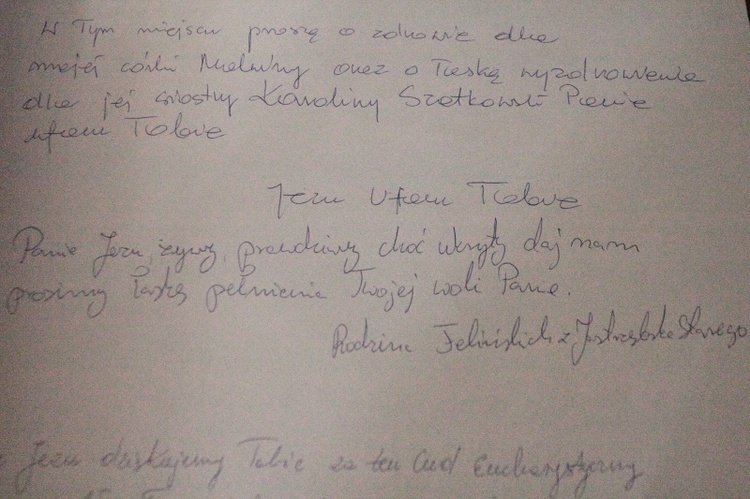 W Tym miejscu proszę o zdrowie dla
mojej córki Malwiny oraz o łaskę wyzdrowienia
dla jej siostry Karoliny Szotkowski Panie
ufam Tobie
Jezu Ufam Tobie
Panie Jezu, żywy, prawdziwy choć ukryty daj nam
prosimy łaskę pełnienia Twojej woli Panie.
Rodzina Felińskich z Jastrząbka Starego
Jezu dziękujemy Tobie za ten Cud Eucharystyczny